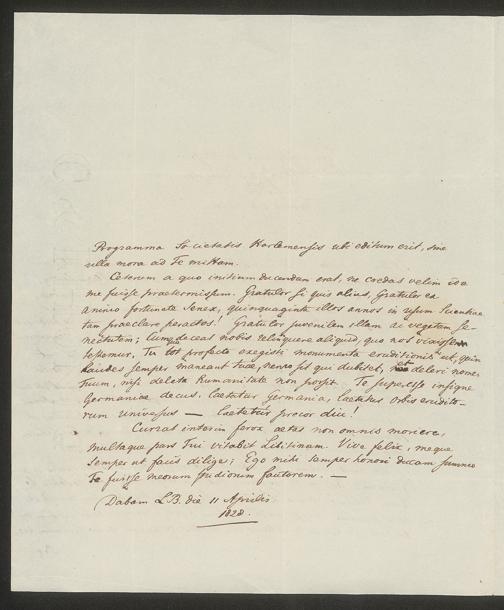 Programma Societatis Harlemensis ubi editum erit, sine
ulla mora ad Te mittam.
Ceterum a quo initium ducendum erat, ne credas velim id a
me fuisse praetermissum. Gratulor si quis alius, Gratulor ex
animo fortunate Senex, quinquaginta illos annos in usum Scientiae
tam praeclare peractos! Gratulor juvenilem illam ac vegetam se-
nectutem; cumque doceas nobis relinquere aliquid, quo nos vixisse
testemur, Tu tot profecto exegisti monumenta eruditionis ut, quin
laudes semper maneant Tuae, nemo sit qui dubitet, et deleri nomen
Tuum, nisi deleta humanitate non possit. Te superesse insigne
Germaniae decus, laetatur Germania, laetatur Orbis erudito-
rum universus — laetetur precor diu!
Currat interim ferox aetas non omnis moriere,
multaque pars Tui vitabit Libitinam. Vive felix, meque
semper ut facis dilige; Ego mihi semper honori ducam summo
Te fuisse meorum studiorum fautorem. —
Dabam L.B. die 11 Aprilis
1828.